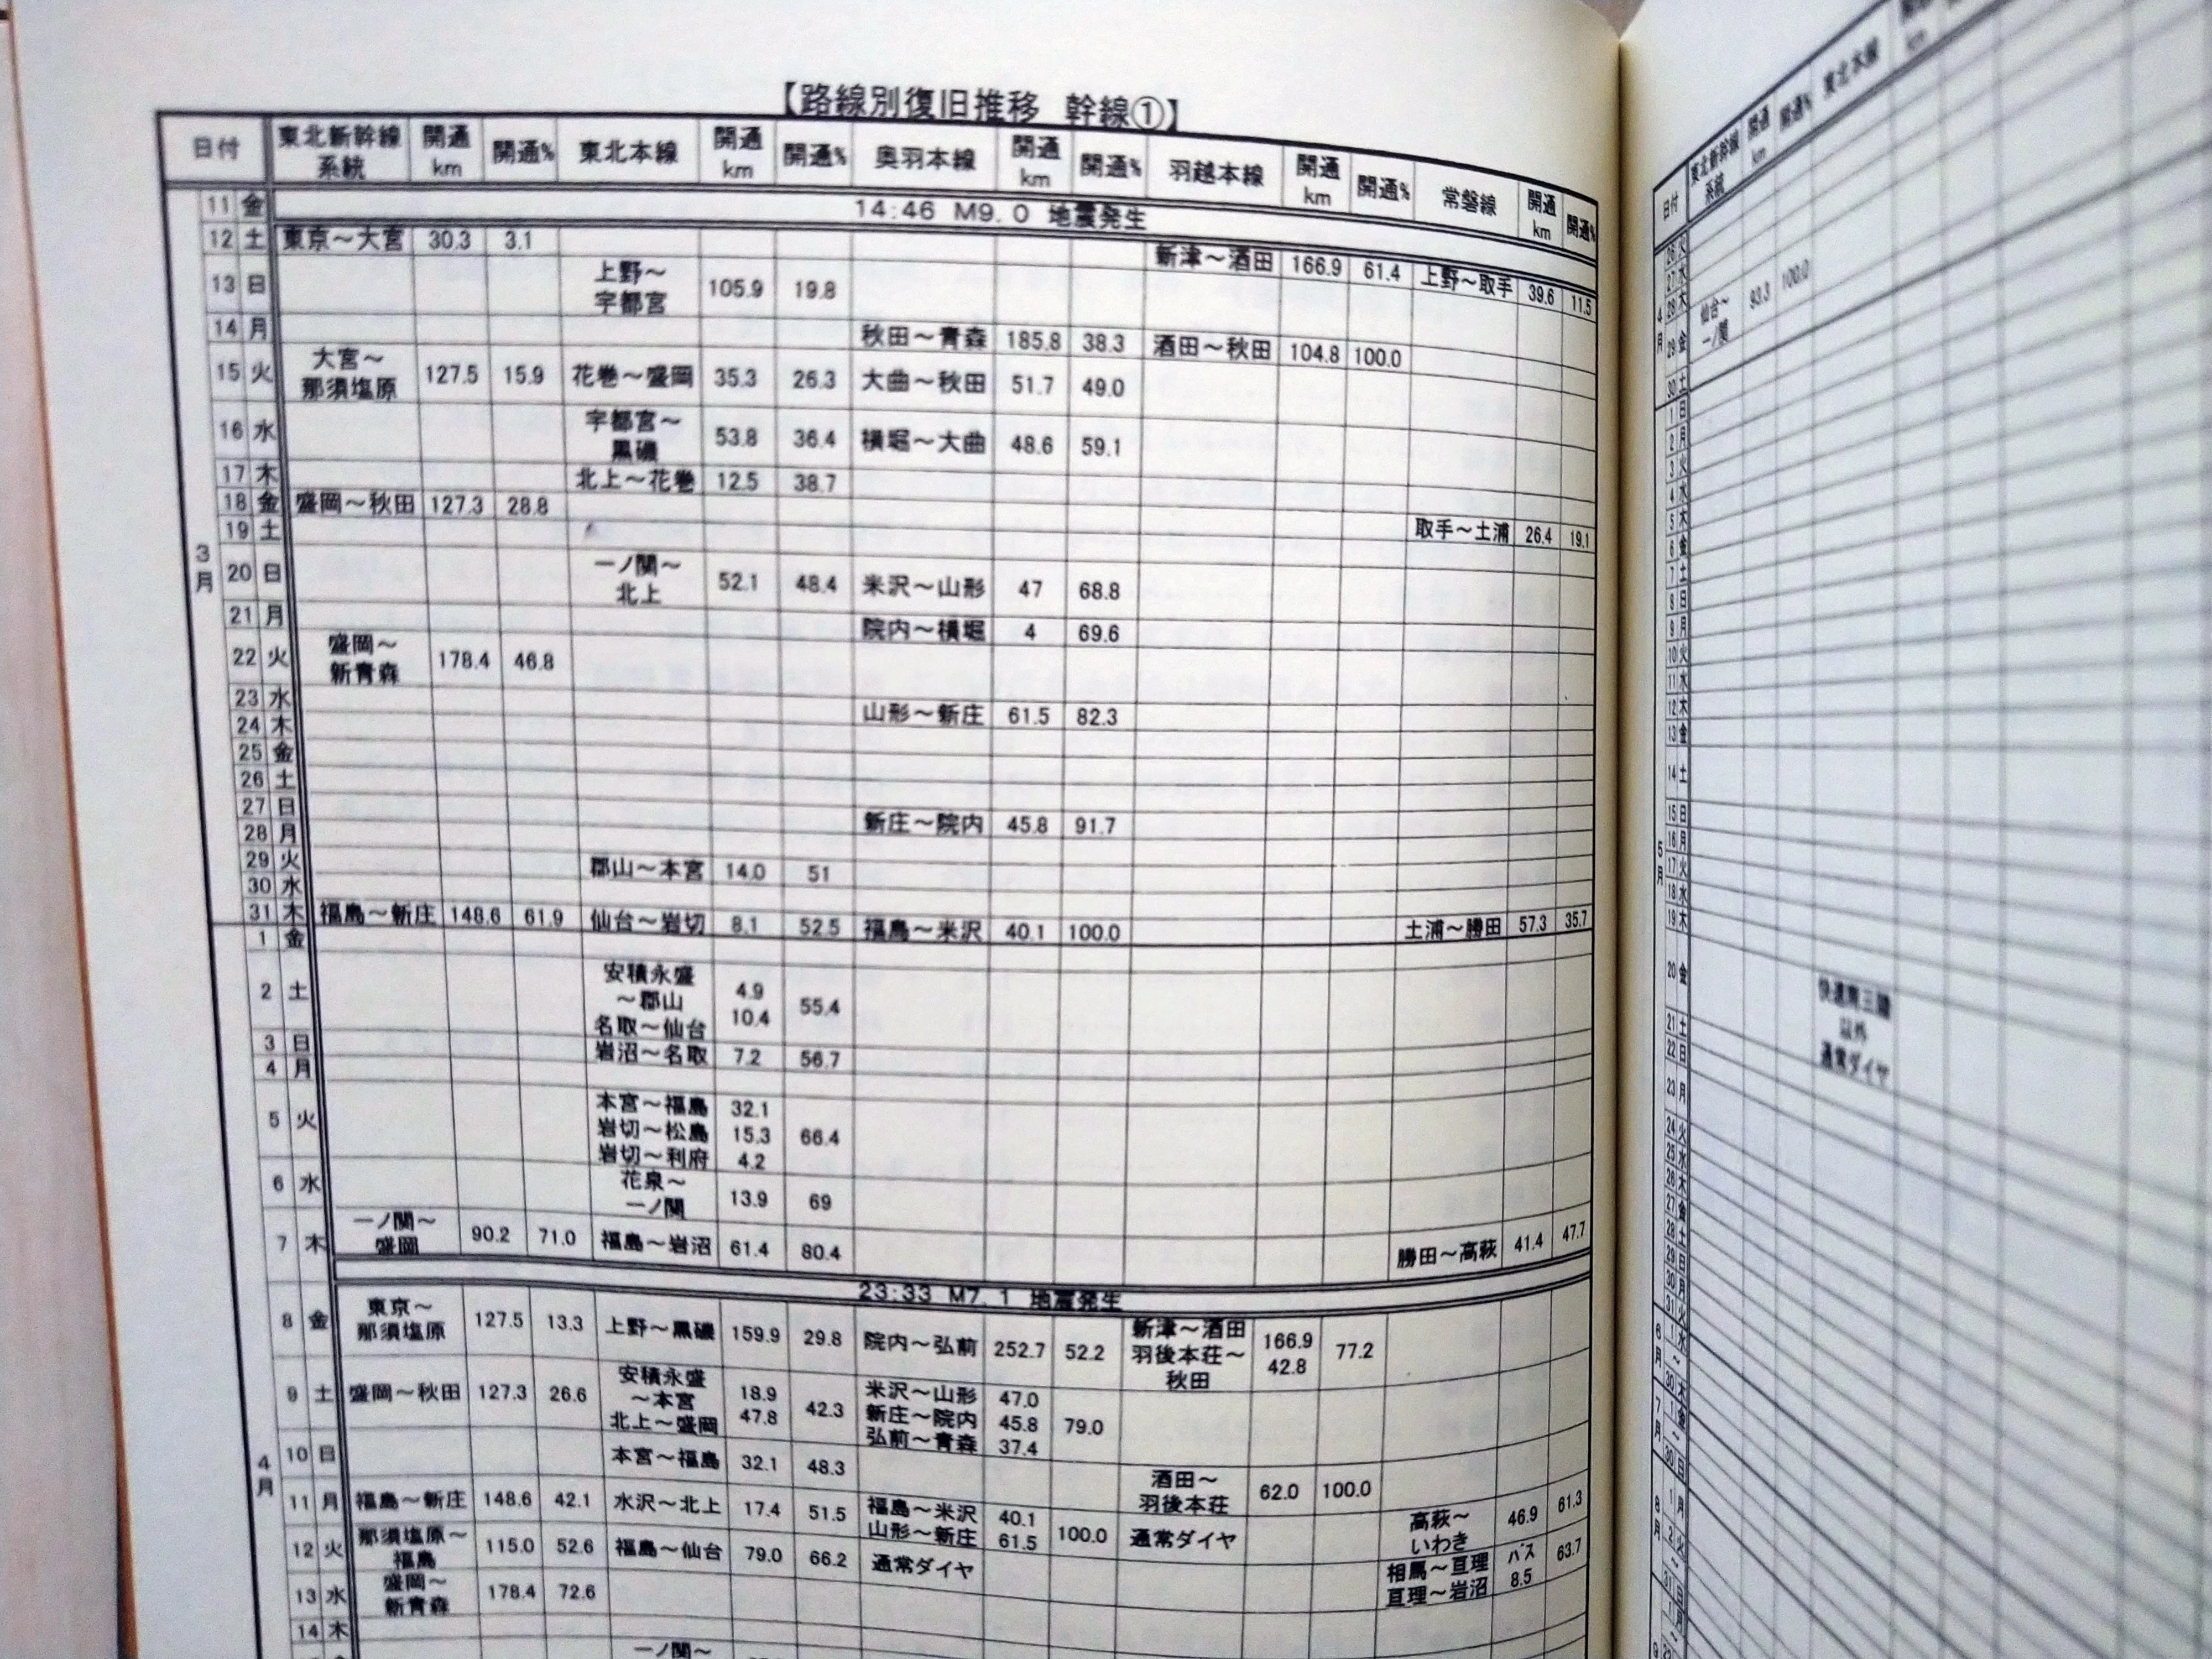 【路線別復旧推移 幹線①】
日付 東北新幹線系統 開通km 開通% 東北本線 開通km 開通% 奥羽本線 開通km 開通% 羽越本線 開通km 開通% 常磐線 開通km 開通%
3月
11 金 14:46 M9.0 地震発生
12 土 東京～大宮 30.3 3.1
新津～酒田 166.9 61.4 上野～取手 39.6 11.5
13 日 上野～宇都宮 105.9 19.8
14 月 秋田～青森 185.8 38.3 酒田～秋田 104.8 100.0
15 火 大宮～那須塩原 127.5 15.9 花巻～盛岡 35.3 26.3 大曲～秋田 51.7 49.0
16 水 宇都宮～黒磯 53.8 36.4 横堀～大曲 48.6 59.1
17 木 北上～花巻 12.5 38.7
18 金 盛岡～秋田 127.3 28.8
19 土 取手～土浦 26.4 19.1
20 日 一ノ関～北上 52.1 48.4 米沢～山形 47 68.8
21 月 院内～横堀 4 69.6
22 火 盛岡～新青森 178.4 46.8
23 水
24 木 山形～新庄 61.5 82.3
25 金
26 土
27 日
28 月 新庄～院内 45.8 91.7
29 火 郡山～本宮 14.0 51
30 水
31 木 福島～新庄 148.6 61.9 仙台～岩切 8.1 52.5 福島～米沢 40.1 100.0 土浦～勝田 57.3 35.7
4月
1 金
2 土 安積永盛～郡山 4.9 名取～仙台 10.4 55.4
3 日 岩沼～名取 7.2 56.7
4 月
5 火 本宮～福島 32.1 岩切～松島 15.3 岩切～利府 4.2 66.4
6 水 花泉～一ノ関 13.9 69
7 木 一ノ関～盛岡 90.2 71.0 福島～岩沼 61.4 80.4 勝田～高萩 41.4 47.7
23:33 M7.1 地震発生
8 金 東京～那須塩原 127.5 13.3 上野～黒磯 159.9 29.8 院内～弘前 252.7 52.2 新津～酒田 166.9 羽後本荘～秋田 42.8 77.2
9 土 盛岡～秋田 127.3 26.6 安積永盛～本宮 18.9 北上～盛岡 47.8 42.3 米沢～山形 47.0 新庄～院内 45.8 弘前～青森 37.4 79.0
10 日 本宮～福島 32.1 48.3 酒田～羽後本荘 62.0 100.0
11 月 福島～新庄 148.6 42.1 水沢～北上 17.4 51.5 福島～米沢 40.1 山形～新庄 61.5 100.0 通常ダイヤ 高萩～いわき 46.9 61.3
12 火 那須塩原～福島 115.0 52.6 福島～仙台 79.0 66.2 通常ダイヤ 相馬～亘理 バス 亘理～岩沼 8.5 63.7
13 水 盛岡～新青森 178.4 72.6
14 木
一ノ関～
日付 東北新幹線系統 開通km 開通% 東北本線 開通km
4月
26 火
27 水
28 木
29 金 仙台～一ノ関 93.3 100.0
30 土
5月
1 日
2 月
3 火
4 水
5 木
6 金
7 土
8 日
9 月
10 火
11 水
12 木
13 金
14 土
15 日
16 月
17 火
18 水
19 木
20 金
以外
通常ダイヤ
21 土
22 日
23 月
24 火
25 水
26 木
27 金
28 土
29 日
30 月
31 火
6月
1 水
～
30 木
7月
1 金
～
8月
1 月